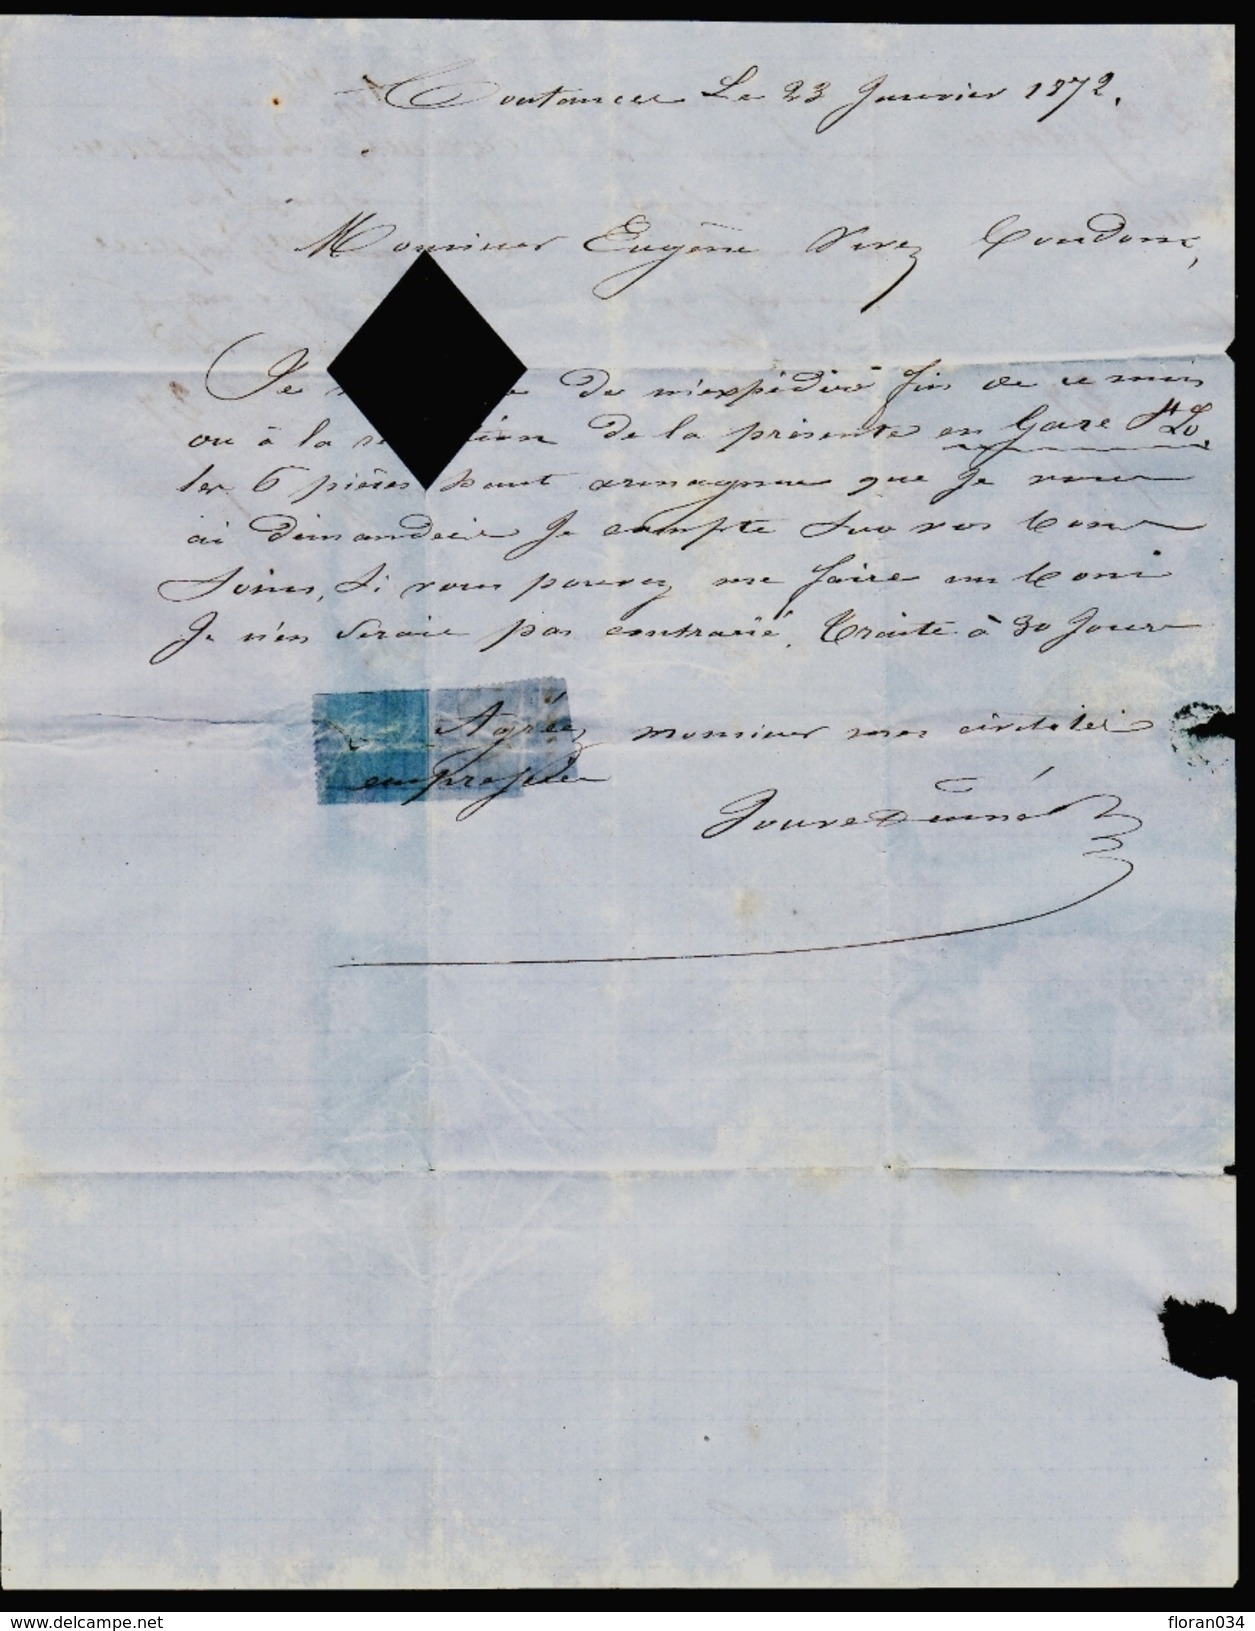 Coutances Le 23 Janvier 1872.
Monsieur Eugène Vivez Condom,
Je de m'expédier fin de ce mois
ou à la ré tion de la présente en Gare St Lo.
les 6 pièces haut armagnac que Je vous
ai demandées Je compte sur vos bons
Soins, Si vous pouvez me faire un boni
Je n'en serais pas contrarié. Traite à 30 Jours
Agréez monsieur mes civilités
empressées
delcampe.net
floran034